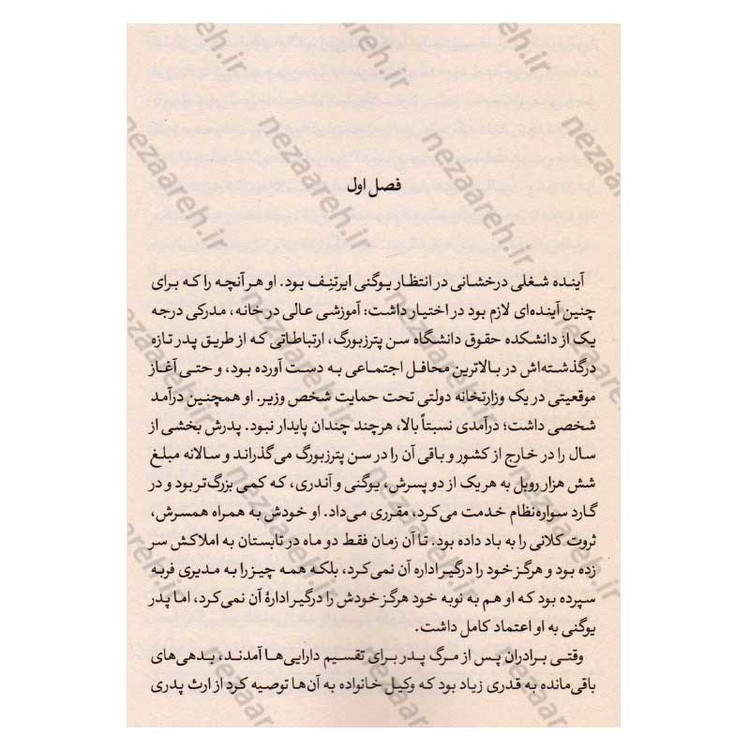 فصل اول
آینده شغلی درخشانی در انتظار یوگنی ایرتنِف بود. او هر آنچه را که برای
چنین آینده‌ای لازم بود در اختیار داشت: آموزشی عالی در خانه، مدرکی درجه
یک از دانشکده حقوق دانشگاه سن پترزبورگ، ارتباطاتی که از طریق پدر تازه
درگذشته‌اش در بالاترین محافل اجتماعی به دست آورده بود، و حتی آغاز
موقعیتی در یک وزارتخانه دولتی تحت حمایت شخص وزیر. او همچنین درآمد
شخصی داشت؛ درآمدی نسبتاً بالا، هرچند چندان پایدار نبود. پدرش بخشی از
سال را در خارج از کشور و باقی آن را در سن پترزبورگ می‌گذراند و سالانه مبلغ
شش هزار روبل به هر یک از دو پسرش، یوگنی و آندری، که کمی بزرگ‌تر بود و در
گارد سواره‌نظام خدمت می‌کرد، مقرری می‌داد. او خودش به همراه همسرش،
ثروت کلانی را به باد داده بود. تا آن زمان فقط دو ماه در تابستان به املاکش سر
زده بود و هرگز خود را درگیر اداره آن نمی‌کرد، بلکه همه چیز را به مدیری فربه
سپرده بود که او هم به نوبه خود هرگز خودش را درگیر ادارهٔ آن نمی‌کرد، اما پدر
یوگنی به او اعتماد کامل داشت.
وقتی برادران پس از مرگ پدر برای تقسیم دارایی‌ها آمدند، بدهی‌های
باقی‌مانده به قدری زیاد بود که وکیل خانواده به آن‌ها توصیه کرد از ارث پدری
nezaareh.ir